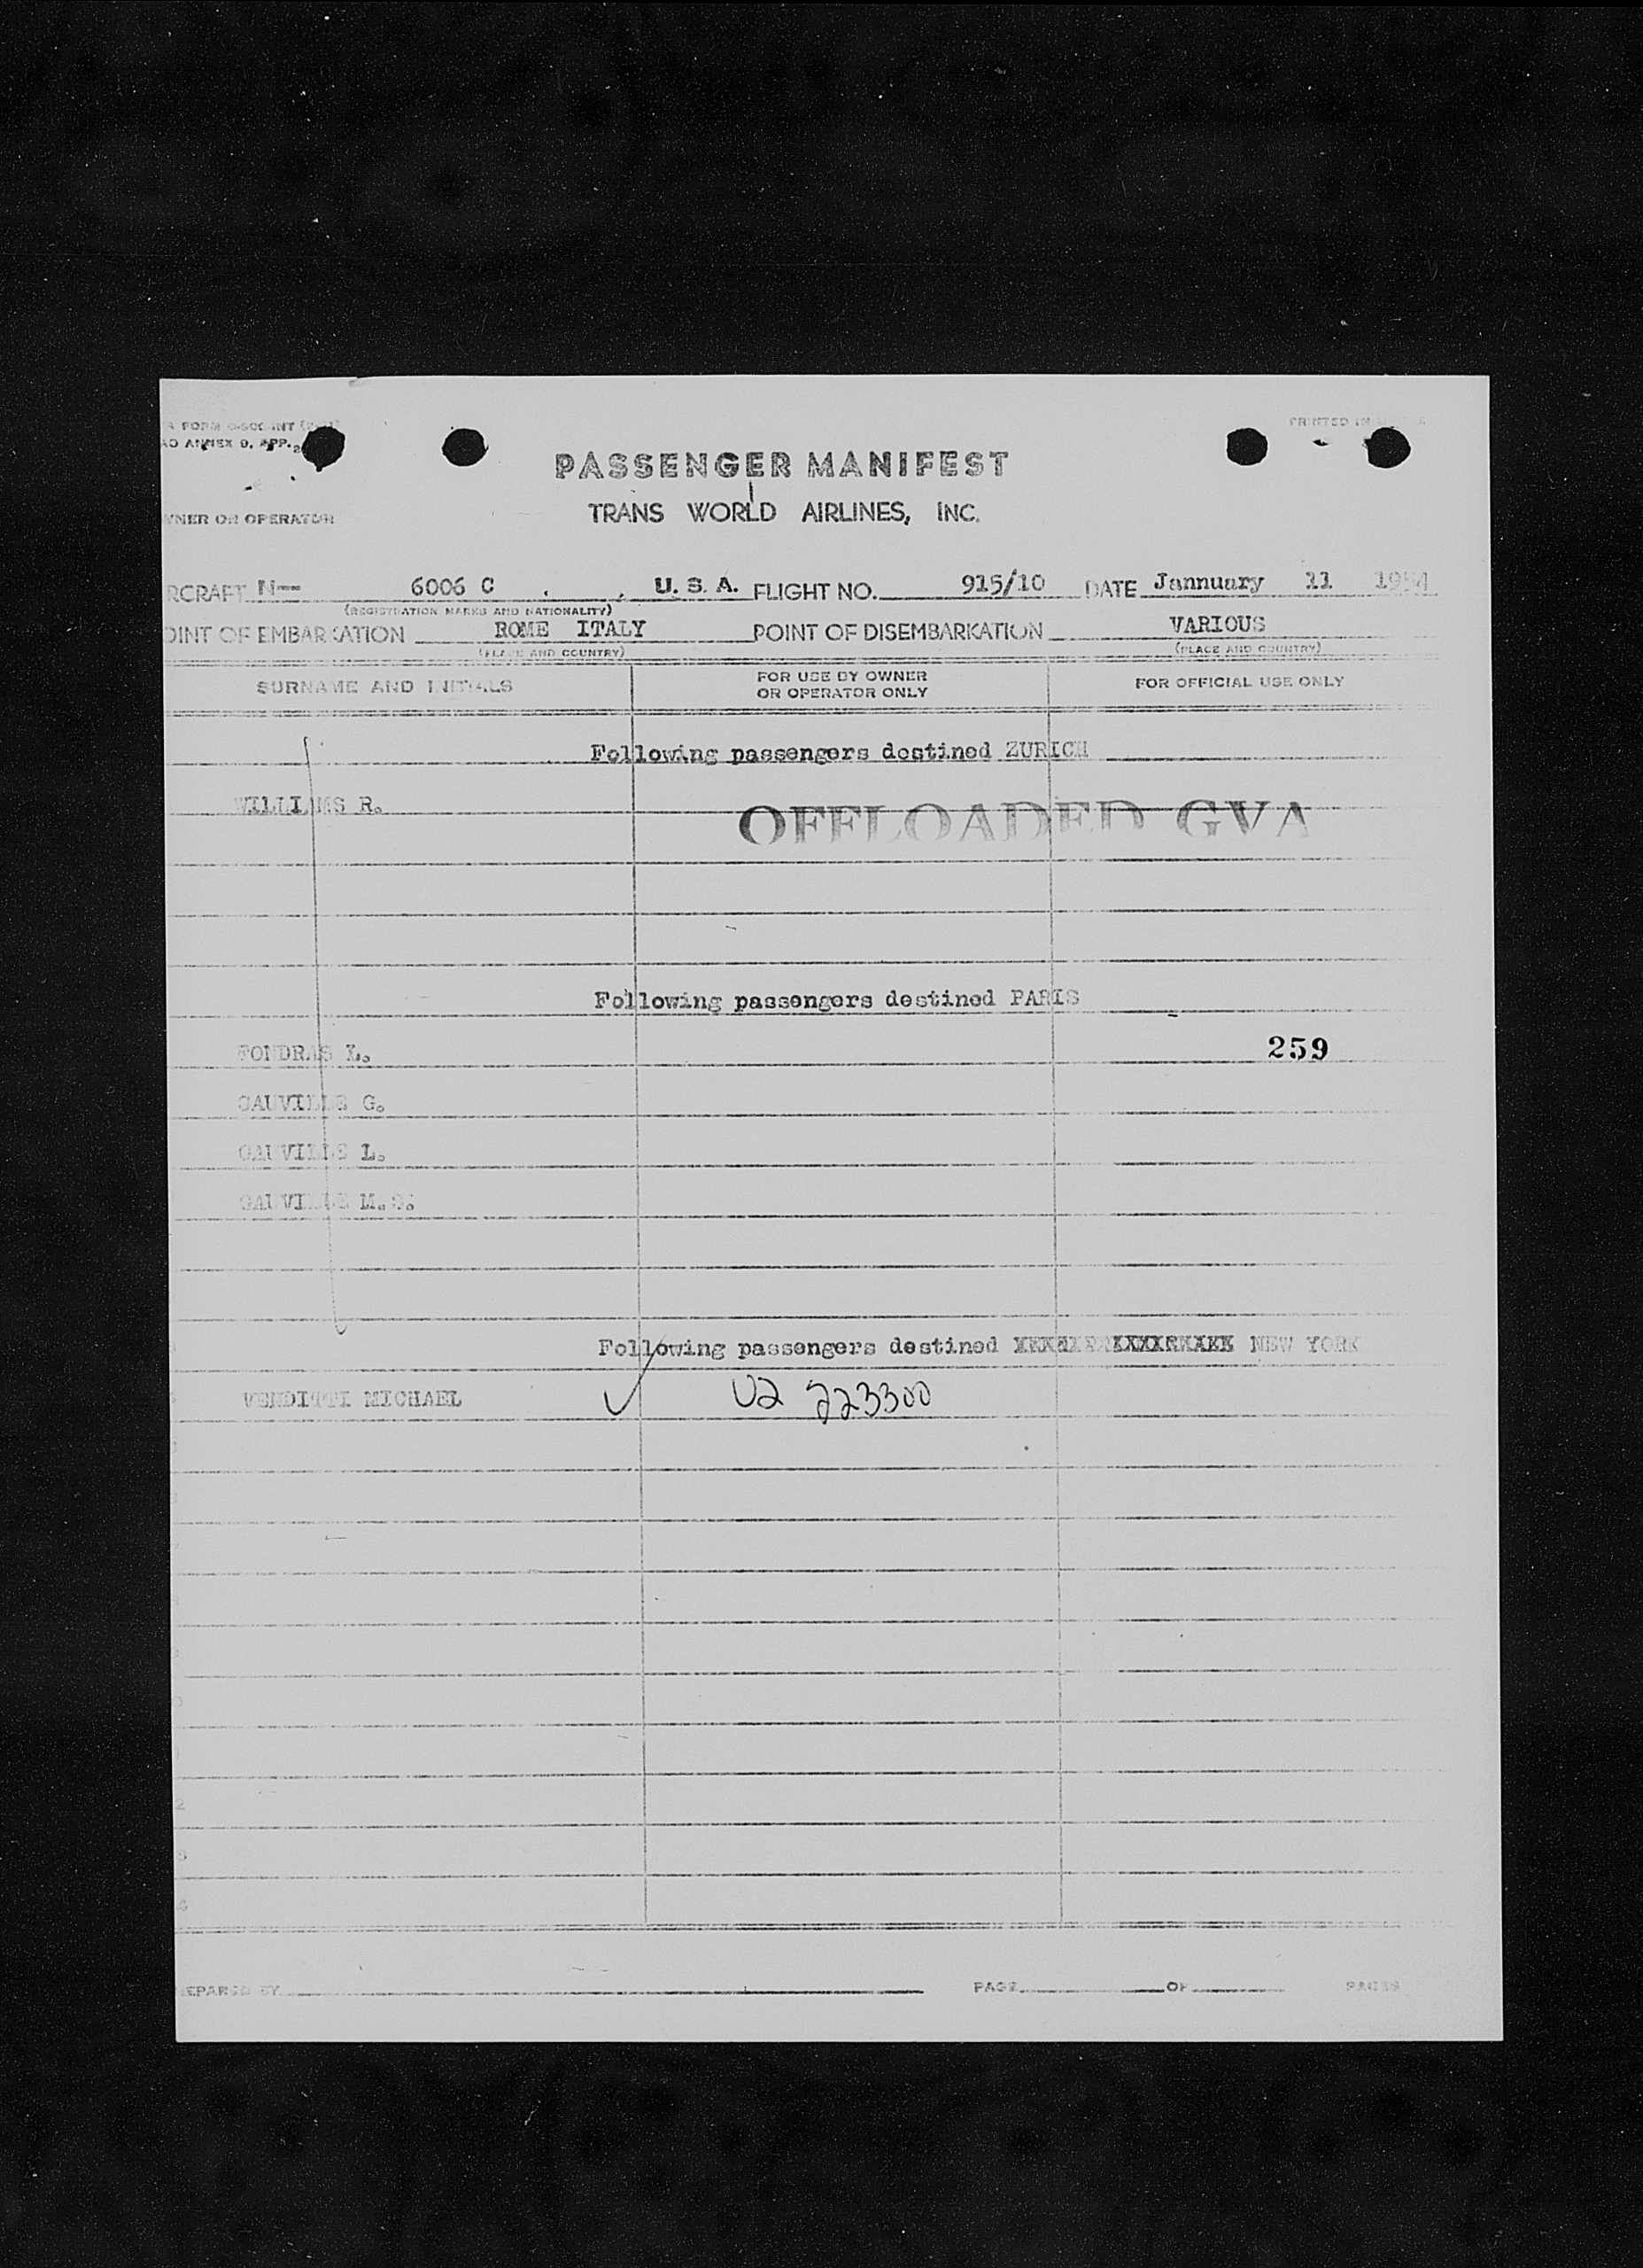 PRINTED IN
ANNEX 9, APP. 2
PASSENGER MANIFEST
TRANS WORLD AIRLINES, INC.
WNER OR OPERATOR
RCRAFT N-- 6006 C , U. S. A. FLIGHT NO. 915/10 DATE Jannuary 11 1954
(REGISTRATION MARKS AND NATIONALITY)
OINT OF EMBARKATION ROME ITALY POINT OF DISEMBARKATION VARIOUS
(PLACE AND COUNTRY) (PLACE AND COUNTRY)
SURNAME AND INITIALS FOR USE BY OWNER OR OPERATOR ONLY FOR OFFICIAL USE ONLY
Following passengers destined ZURICH
WILLIAMS R. OFFLOADED GVA
Following passengers destined PARIS
FONDRAS 259
GAUVILLE G.
GAUVILLE L.
GAUVILLE M.S.
Following passengers destined NEW YORK
VENDITTI MICHAEL ✓ V2 223300
EPARED BY PAGE OF PAGES